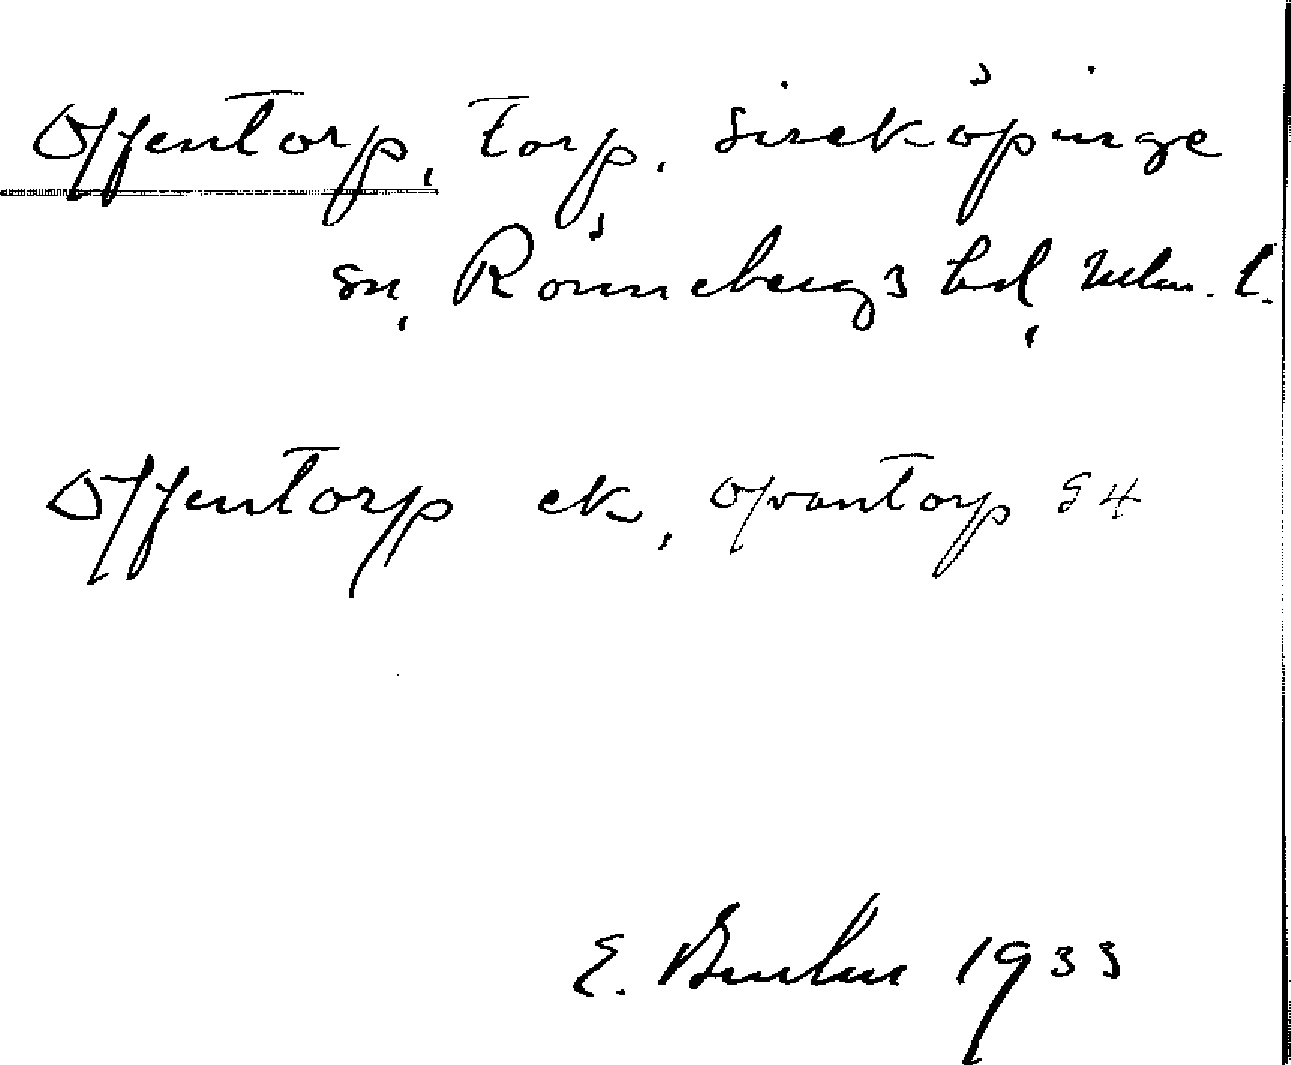 Offentorp, Torp. Sireköpinge
sn, Rönnebergs hd, Mlm. l.
Offentorp ek, Ofvantorp G4
E. 1933